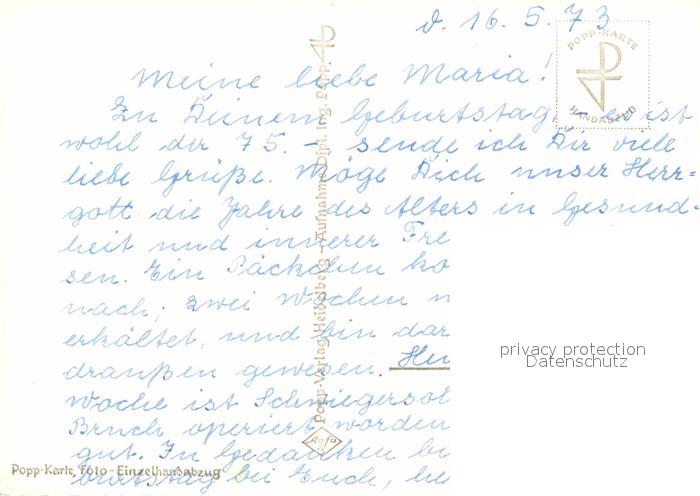 d. 16.5.73
POPP-KARTE
HANDABZUG
Meine liebe Maria!
Zu Deinem Geburtstag, - es ist
wohl der 75. - sende ich Dir viele
liebe Grüße. Möge Dich unser Herr=
gott die Jahre des Alters in Gesund-
heit und innerer Fre
sen. Ein Päckchen ko
nach; zwei Wochen
erkältet, und bin dar
draußen gewesen. Heu
woche ist Schwiegersoh
Bruch operiert worden
gut. In Gedanken bi
burtstag bei Euch,
Popp-Verlag Heidelberg - Aufnahme Dipl. Ing. Popp
Agfa
Popp-Karte, Foto - Einzelhandabzug
privacy protection
Datenschutz